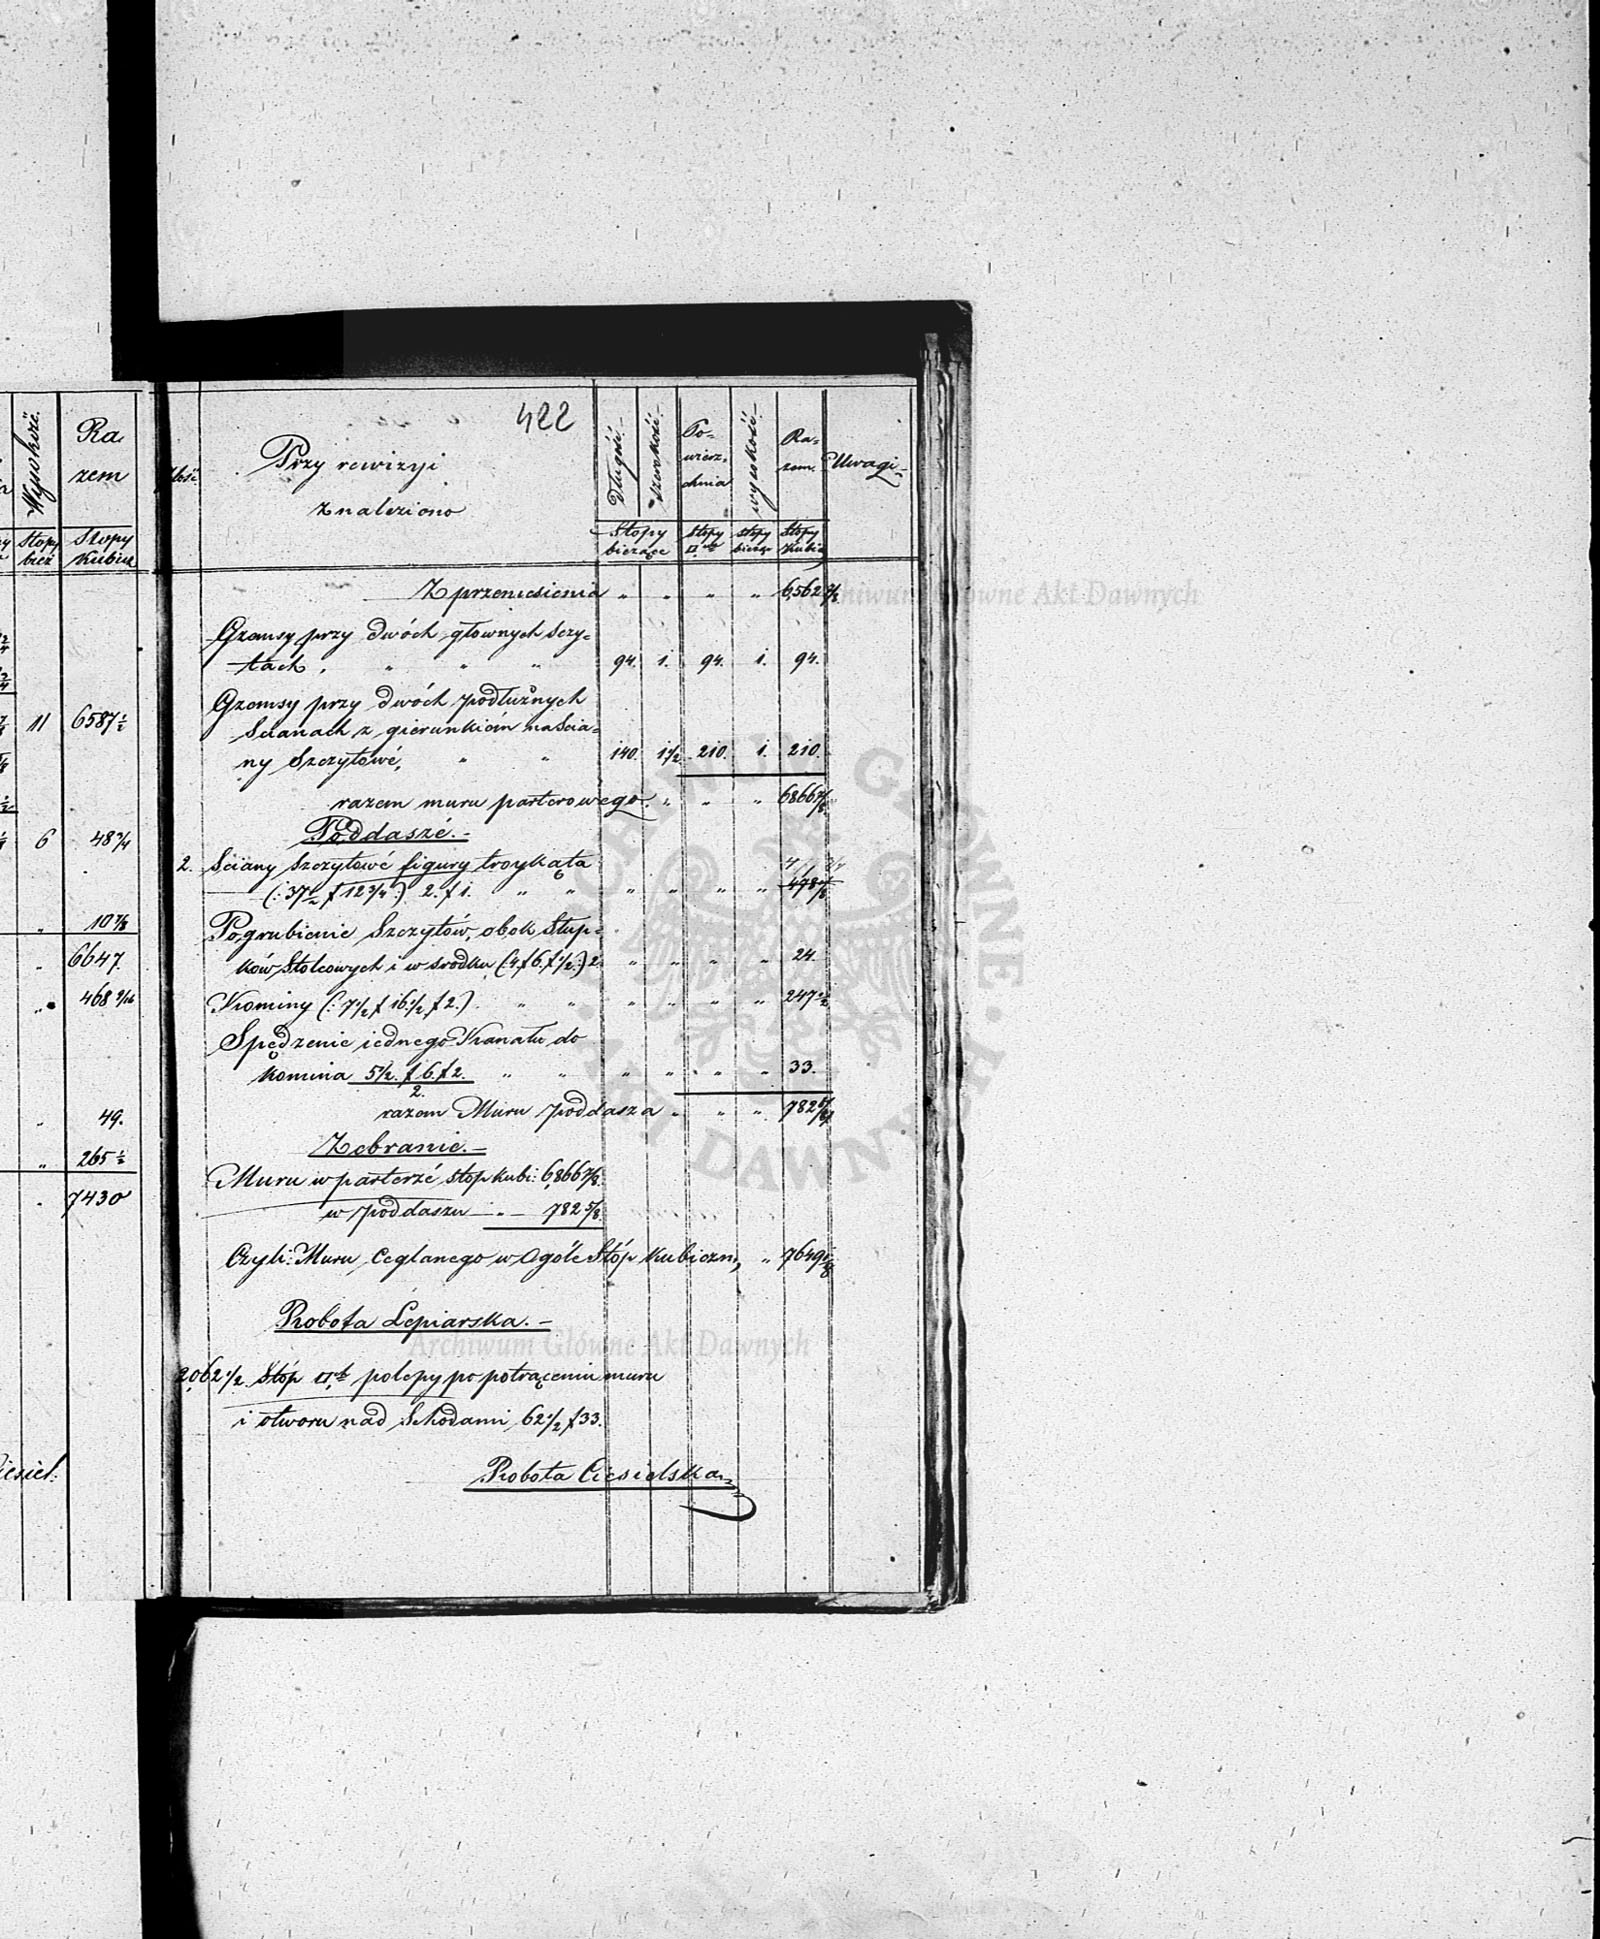 Wysokość.
Ra
zem
Stopy
bież
Stopy
Kubicz
11 6587 1/2
6 48 3/4
" 10 7/8
" 6647.
" 468 9/16
" 49.
" 265 1/2
7430
Ciesiel:
422
Ilość
Przy rewizyi
Znaleziono
Długość.
Szerokość.
Po=
wierz=
chnia
wysokość.
Ra=
zem.
Uwagi
Stopy
bieżące
Stopy
□
stopy
bieżąc
Stopy
Kubic
Z przeniesienia " " " " 6,562 7/8
Gzemsy przy dwóch głownych Szczy=
tach, " " " 94. 1. 94. 1. 94.
Gzemsy przy dwóch podłużnych
Scianach z gierunkiem na Scia=
ny Szczytowé, " " 140. 1 1/2 210. 1. 210.
razem muru parterowego. " " " 6866 7/8
Poddaszé.
2. Sciany Szczytowé figury troykąta
(: 37 1/2 f 12 3/4 :) 2. f 1. " " " " " " 478 1/8
Pogrubienie Szczytów, obok Słup=
ków Stolcowych i w srodku (: 4 f 6. f 1/2 :) 2 " " " " 24.
Kominy (: 7 1/2 f 16 1/2 f 2.) " " " " " " 247 1/2
Spędzenie iednego Kanału do
Komina 5 1/2. f 6. f 2. " " " " " " 33.
2.
razem Muru poddasza " " " 782 5/8
Zebranie.
Muru w parterzé stop kubi: 6,866 7/8.
w poddaszu " 782 5/8
Czyli: Muru Ceglanego w Ogóle Stóp Kubiczn, " 7649 1/2
Robota Lepiarska.
2,062 1/2 Stóp □ polepy po potrąceniu muru
i otworu nad Schodami 62 1/2 f 33.
Robota Ciesielska
Archiwum Główne Akt Dawnych
ARCHIWUM GŁÓWNE AKT DAWNYCH
Archiwum Główne Akt Dawnych